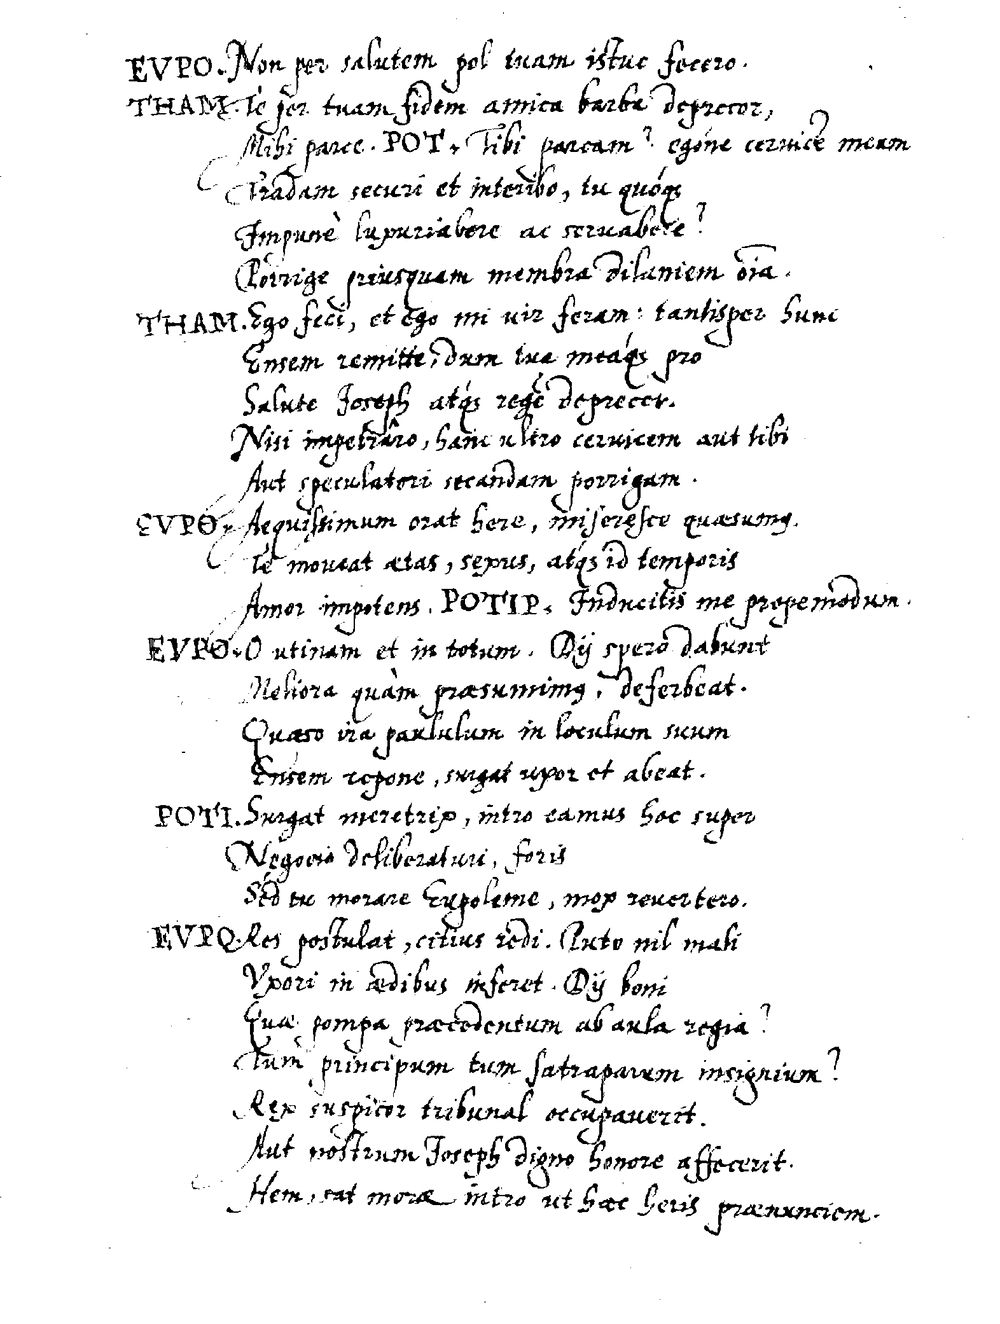 EVPO. Non per salutem pol tuam istuc fecero.
THAM. Te per tuam fidem amica barba deprecor,
Mihi parce. POT. Tibi parcam? egóne ceruicẽ meam
Tradam securi et interibo, tu quóqȝ
Impunè luxuriabere ac seruabere?
Porrige priusquam membra dilaniem oĩa.
THAM. Ego feci, et ego mi uir feram: tantisper hunc
Ensem remitte, dum tua meáqȝ pro
Salute Joseph atqȝ regẽ deprecer.
Nisi impetrâro, hanc ultro ceruicem aut tibi
Aut speculatori secandam porrigam.
EVPO. Aequissimum orat here, miseresce quæsumꝰ.
Te moueat ætas, sexus, atqȝ id temporis
Amor impotens. POTIP. Inducitis me propemodum.
EVPO. O utinam et in totum. Dij spero dabunt
Meliora quàm præsumimꝰ, deferbeat.
Quæso ira paululum in loculum suum
Ensem repone, surgat uxor et abeat.
POTI. Surgat meretrix, intro eamus hoc super
Negocio deliberaturi, foris
Sed tu morare Eupoleme, mox reuertero.
EVPO. Res postulat, citius redi. Puto nil mali
Vxori in ædibus inferet. Dij boni
Quæ pompa præcedentum ab aula regia?
Tum principum tum satraparum insignium?
Rex suspicor tribunal occupauerit.
Aut nostrum Joseph digno honore affecerit.
Hem, sat moræ intro ut hæc heris prænunciem.